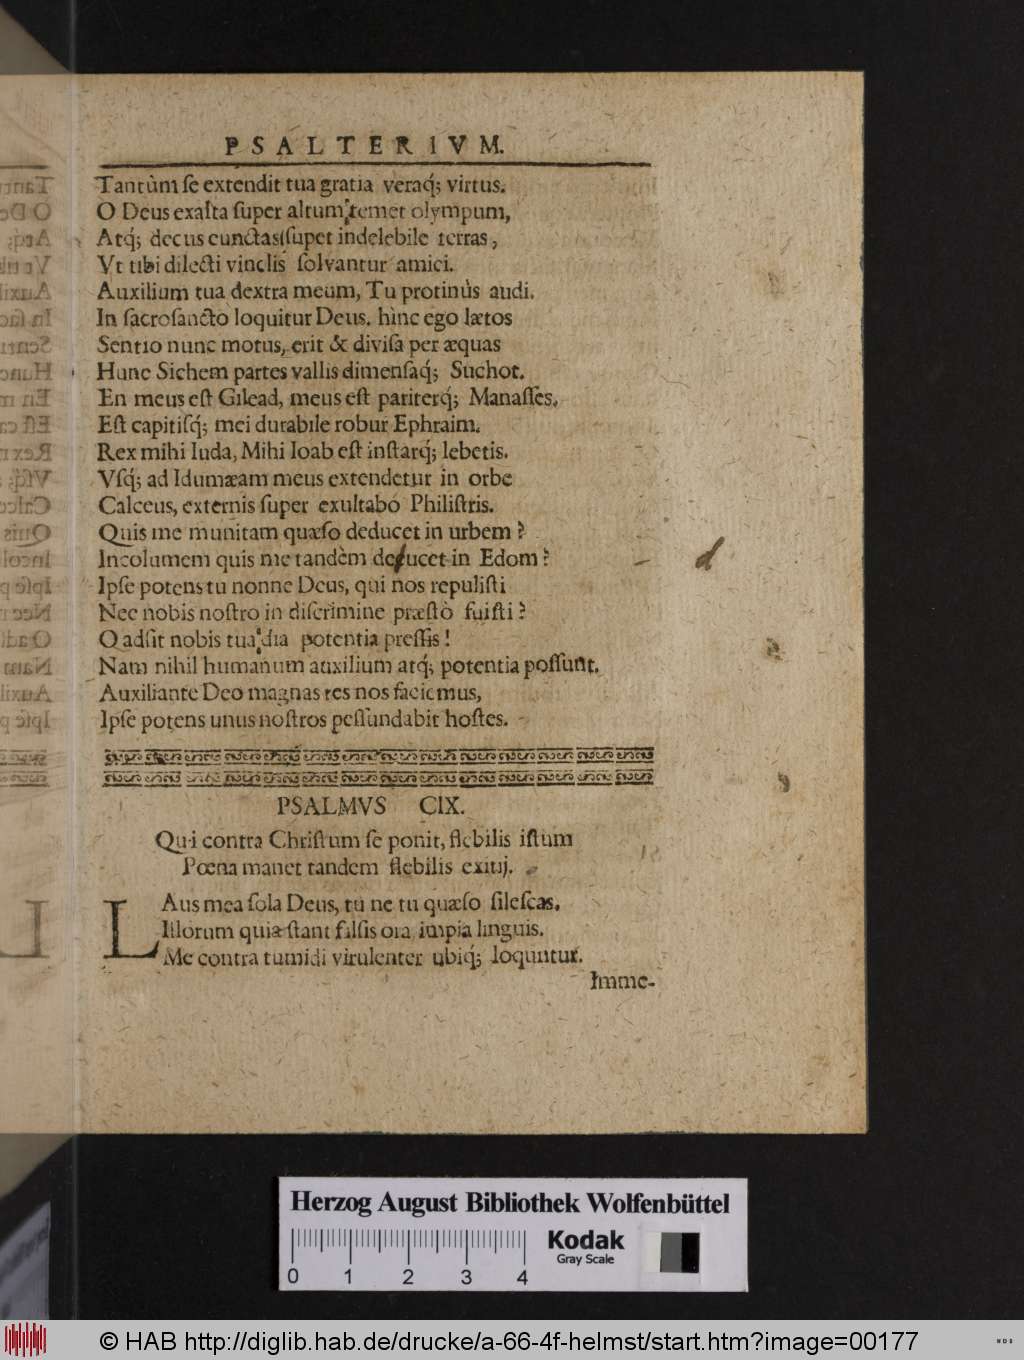 PSALTERIVM.
Tantùm ſe extendit tua gratia veraq́; virtus.
O Deus exalta ſuper altum temet olympum,
Atq́; decus cunctas ſuper indelebile terras,
Vt tibi dilecti vinclis ſolvantur amici.
Auxilium tua dextra meum, Tu protinùs audi.
In ſacroſancto loquitur Deus. hinc ego lætos
Sentio nunc motus, erit & diviſa per æquas
Hunc Sichem partes vallis dimenſaq́; Suchot.
En meus eſt Gilead, meus eſt pariterq́; Manaſſes.
Eſt capitiſq́; mei durabile robur Ephraim.
Rex mihi Iuda, Mihi Ioab eſt inſtarq́; lebetis.
Vſq́; ad Idumæam meus extendetur in orbe
Calceus, externis ſuper exultabo Philiſtris.
Quis me munitam quæſo deducet in urbem?
Incolumem quis me tandèm deducet in Edom?
d
Ipſe potens tu nonne Deus, qui nos repuliſti
Nec nobis noſtro in diſcrimine præſtò fuiſti?
O adſit nobis tua dia potentia preſſis!
Nam nihil humanum auxilium atq́; potentia poſſunt.
Auxiliante Deo magnas res nos faciemus,
Ipſe potens unus noſtros peſſundabit hoſtes.
PSALMVS CIX.
Qui contra Chriſtum ſe ponit, flebilis iſtum
Pœna manet tandem flebilis exitij.
LAus mea ſola Deus, tu ne tu quæſo ſileſcas.
Illorum quia ſtant falſis ora impia linguis.
Me contra tumidi virulenter ubiq́; loquntur.
Imme-
Herzog August Bibliothek Wolfenbüttel
0 1 2 3 4
Kodak
Gray Scale
© HAB http://diglib.hab.de/drucke/a-66-4f-helmst/start.htm?image=00177